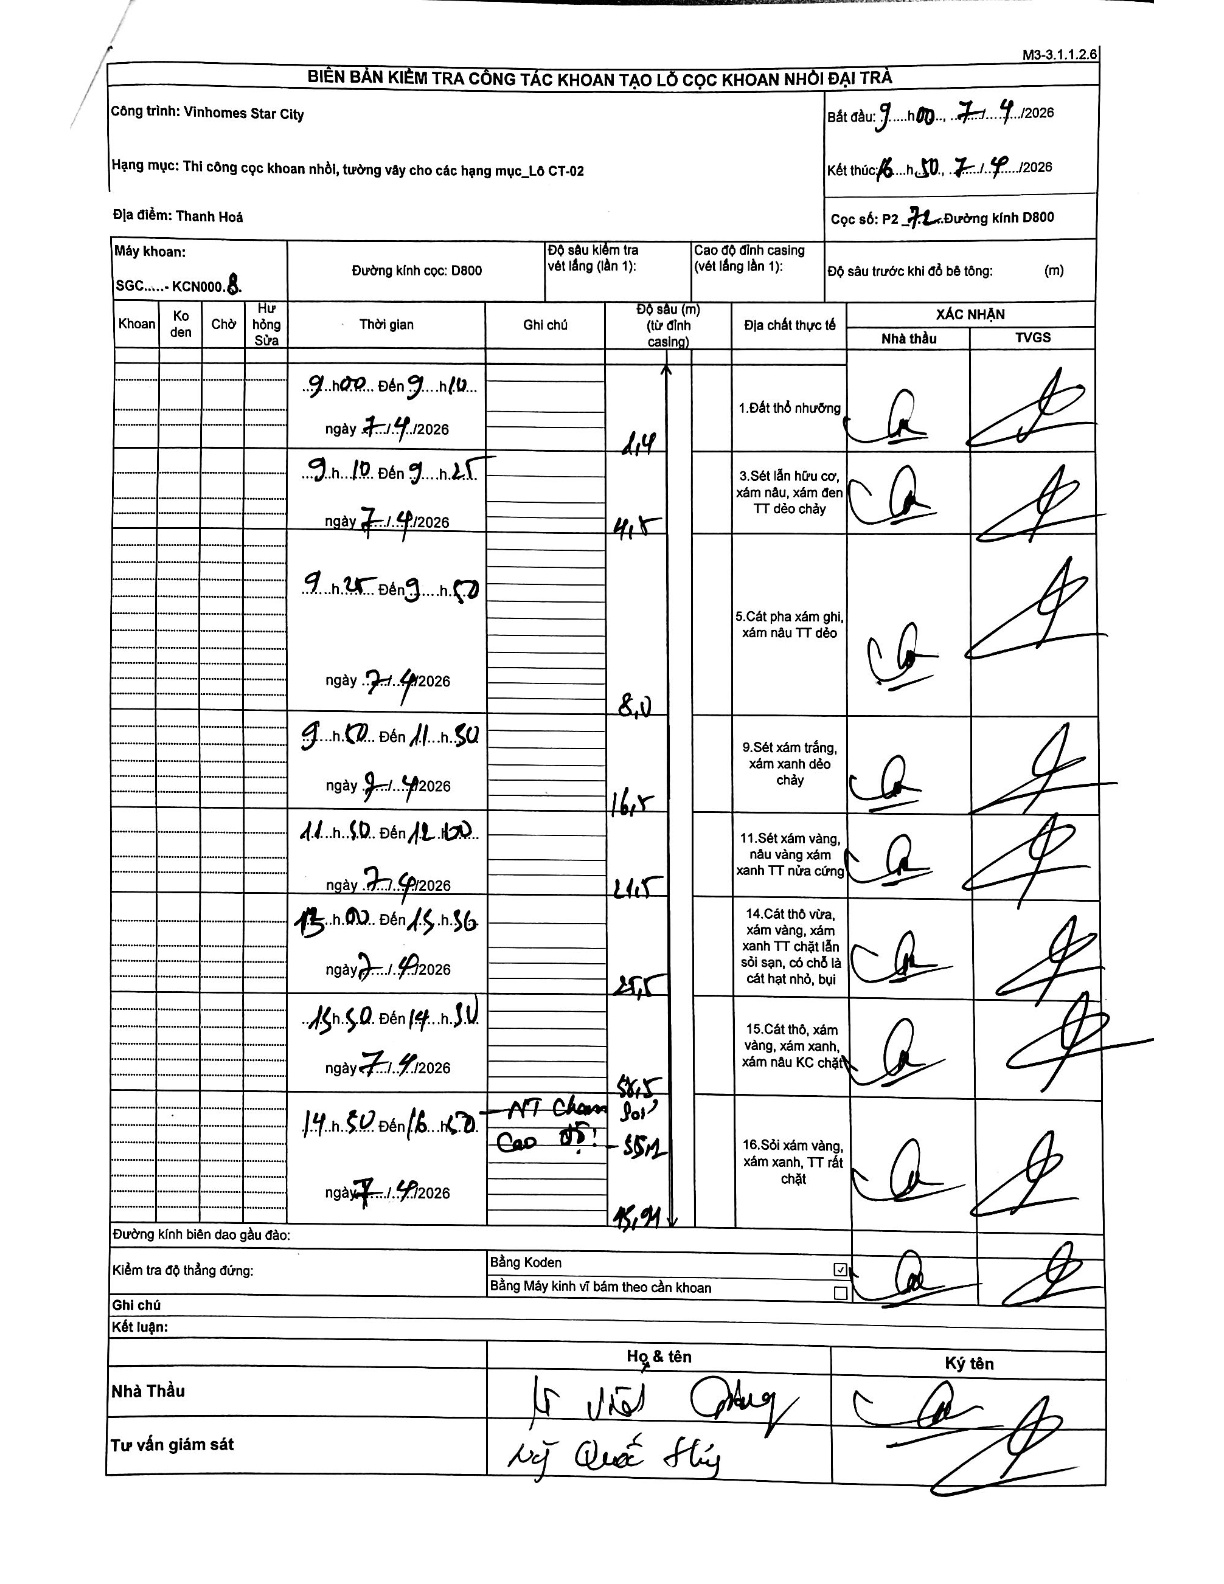 M3-3.1.1.2.6
BIÊN BẢN KIỂM TRA CÔNG TÁC KHOAN TẠO LỖ CỌC KHOAN NHỒI ĐẠI TRÀ
Công trình: Vinhomes Star City
Bắt đầu: 9.....h00.., ..7.../....4.../2026
Hạng mục: Thi công cọc khoan nhồi, tường vây cho các hạng mục_Lô CT-02
Kết thúc:16...h.50., ..7.../..4...../2026
Địa điểm: Thanh Hoá
Cọc số: P2_72..Đường kính D800
Máy khoan:
SGC.....- KCN000.8.
Đường kính cọc: D800
Độ sâu kiểm tra vét lắng (lần 1):
Cao độ đỉnh casing (vét lắng lần 1):
Độ sâu trước khi đổ bê tông: (m)
Khoan Ko den Chờ Hư hỏng Sửa Thời gian Ghi chú Độ sâu (m) (từ đỉnh casing) Địa chất thực tế XÁC NHẬN
Nhà thầu TVGS
..9..h00... Đến 9....h10...
ngày .7../..4../2026
1,4
1.Đất thổ nhưỡng
...9.h...10. Đến 9....h.25
ngày 7.../.4./2026
4,5
3.Sét lẫn hữu cơ,
xám nâu, xám đen
TT dẻo chảy
..9...h.25... Đến 9....h.50
ngày ..7../..4/2026
8,0
5.Cát pha xám ghi,
xám nâu TT dẻo
..9...h.50... Đến 11...h.30
ngày ..7../...4/2026
16,5
9.Sét xám trắng,
xám xanh dẻo
chảy
..11.h..30. Đến 12.h00...
ngày ..7../..4/2026
21,5
11.Sét xám vàng,
nâu vàng xám
xanh TT nửa cứng
13...h.00... Đến 13..h.30
ngày 7..../.4./2026
25,5
14.Cát thô vừa,
xám vàng, xám
xanh TT chặt lẫn
sỏi sạn, có chỗ là
cát hạt nhỏ, bụi
..13h.30.. Đến 14...h.30.
ngày 7.../..4/2026
15.Cát thô, xám
vàng, xám xanh,
xám nâu KC chặt
14..h.30 Đến 16...h50.
ngày 7..../..4/2026
NT Chạm sỏi
Cao độ:
16.Sỏi xám vàng,
xám xanh, TT rất
chặt
Đường kính biên dao gầu đào:
Kiểm tra độ thẳng đứng:
Bằng Koden ☑
Bằng Máy kinh vĩ bám theo cần khoan ☐
Ghi chú
Kết luận:
Họ & tên Ký tên
Nhà Thầu
Tư vấn giám sát
Quốc